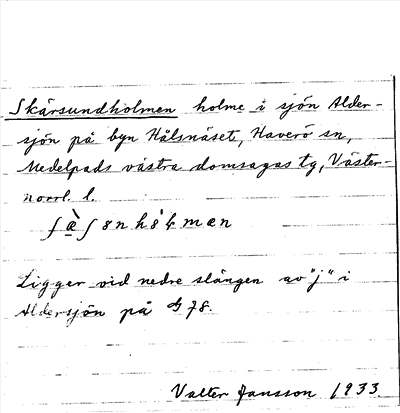 Skärsundholmen holme i sjön Alder-
sjön på byn Hålsnäset, Haverö sn,
Medelpads västra domsagas tg, Väster-
norrl. l.
Ligger vid nedre slängen av "j" i
Aldersjön på 78.
Valter Jansson 1933.